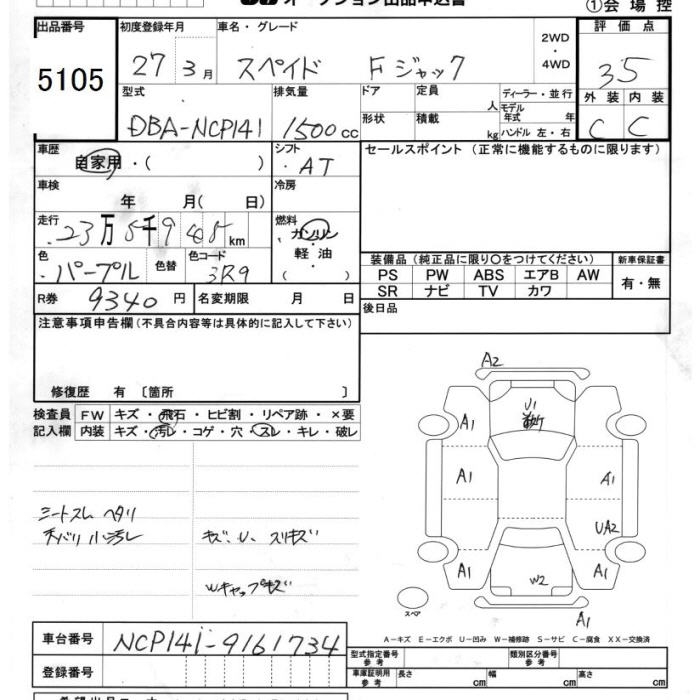 オークション出品申込書
①会場控
出品番号
5105
初度登録年月
27 3月
車名・グレード
スペイド Fジャック
2WD
・
4WD
評価点
3.5
型式
DBA-NCP141
排気量
1500cc
ドア
形状
定員
人
積載
kg
ディーラー・並行
モデル
年式 年
ハンドル 左・右
外装 内装
C C
車歴
自家用・( )
シフト
AT
セールスポイント (正常に機能するものに限ります)
車検
年 月(日)
冷房
走行
23万5千905km
燃料
ガソリン
軽油
( )
色
パープル
色替
色コード
3R9
装備品 (純正品に限り○をつけてください) 新車保証書
PS PW ABS エアB AW
SR ナビ TV カワ
有・無
R券 9340円
名変期限 月 日
後日品
注意事項申告欄 (不具合内容等は具体的に記入して下さい)
修復歴 有 〔箇所 〕
検査員 FW キズ・飛石・ヒビ割・リペア跡・×要
記入欄 内装 キズ・汚レ・コゲ・穴・スレ・キレ・破レ
シートスレ ヘタリ
キズ、U、スリキズ
Wキャップキズ
A2
U1
A1 A1
A1 A1
UA2
A1 W2 A1
A1
スペア
A-キズ E-エクボ U-凹み W-補修跡 S-サビ C-腐食 XX-交換済
車台番号 NCP141-9161734
登録番号
型式指定番号
参考
類別区分番号
参考
車庫証明用
参考
長さ cm 幅 cm 高さ cm